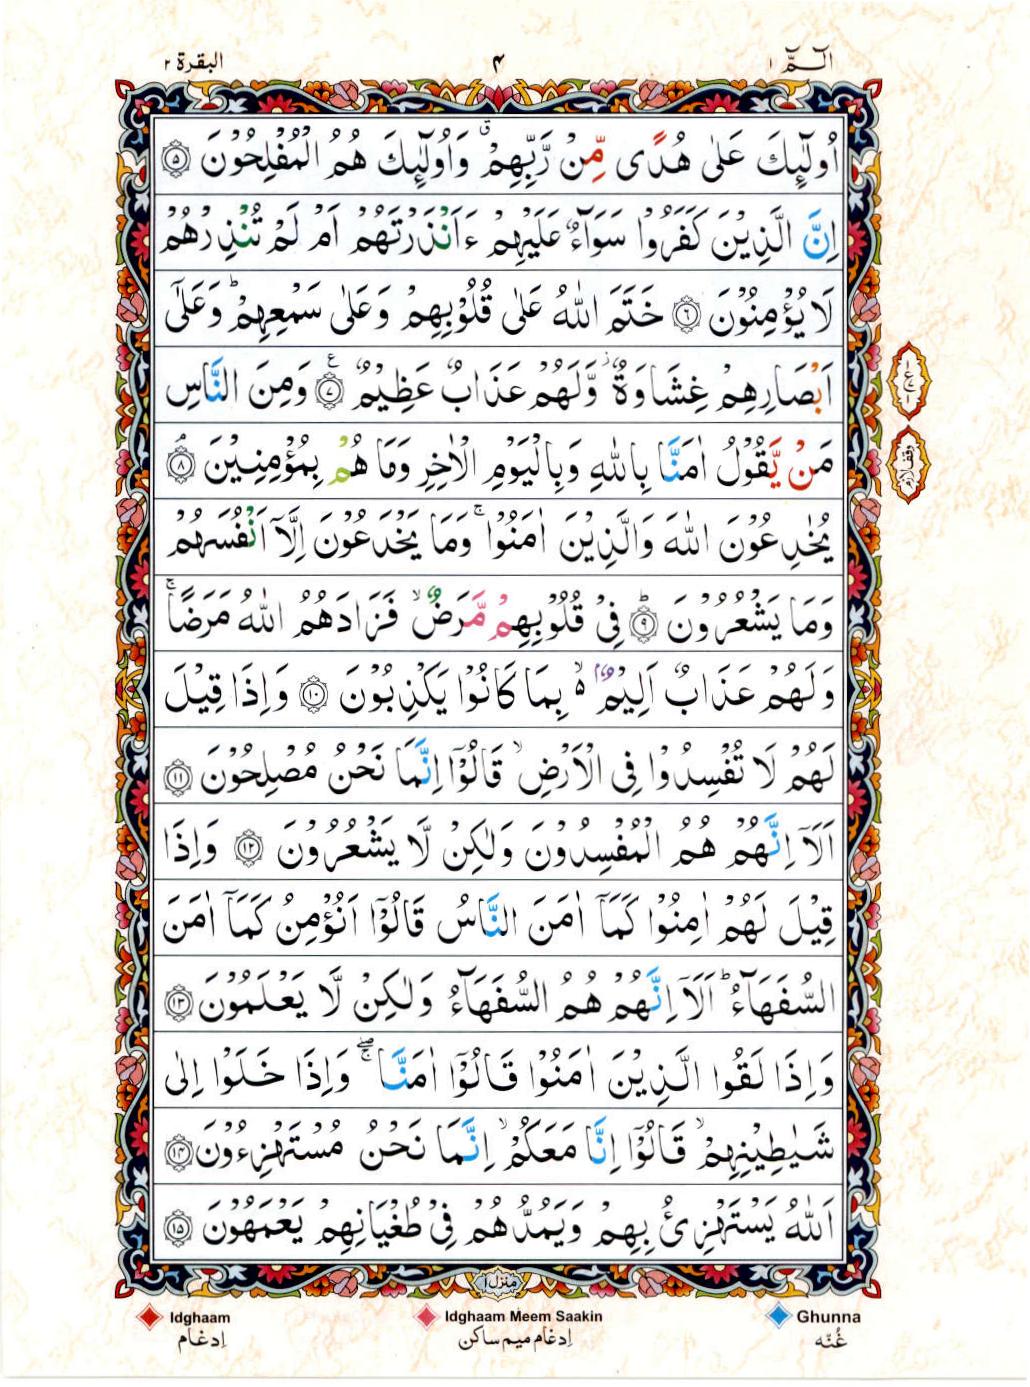 الٓـمّٓ ١
۴
البقرة ٢
اُولٰٓئِكَ عَلٰى هُدًى مِّنْ رَّبِّهِمْ ۗ وَاُولٰٓئِكَ هُمُ الْمُفْلِحُوْنَ ﴿۵﴾
اِنَّ الَّذِيْنَ كَفَرُوْا سَوَآءٌ عَلَيْهِمْ ءَاَنْذَرْتَهُمْ اَمْ لَمْ تُنْذِرْهُمْ
لَا يُؤْمِنُوْنَ ﴿۶﴾ خَتَمَ اللّٰهُ عَلٰى قُلُوْبِهِمْ وَعَلٰى سَمْعِهِمْ ؕ وَعَلٰٓى
اَبْصَارِهِمْ غِشَاوَةٌ ؗ وَّلَهُمْ عَذَابٌ عَظِيْمٌ ﴿۷﴾ ع وَمِنَ النَّاسِ
مَنْ يَّقُوْلُ اٰمَنَّا بِاللّٰهِ وَبِالْيَوْمِ الْاٰخِرِ وَمَا هُمْ بِمُؤْمِنِيْنَ ۘ ﴿۸﴾
وقف لازم
يُخٰدِعُوْنَ اللّٰهَ وَالَّذِيْنَ اٰمَنُوْا ۚ وَمَا يَخْدَعُوْنَ اِلَّآ اَنْفُسَهُمْ
وَمَا يَشْعُرُوْنَ ؕ ﴿۹﴾ فِيْ قُلُوْبِهِمْ مَّرَضٌ ۙ فَزَادَهُمُ اللّٰهُ مَرَضًا ۚ
وَلَهُمْ عَذَابٌ اَلِيْمٌۢ ۙ۬ بِمَا كَانُوْا يَكْذِبُوْنَ ﴿۱۰﴾ وَاِذَا قِيْلَ
لَهُمْ لَا تُفْسِدُوْا فِى الْاَرْضِ ۙ قَالُوْٓا اِنَّمَا نَحْنُ مُصْلِحُوْنَ ﴿۱۱﴾
اَلَآ اِنَّهُمْ هُمُ الْمُفْسِدُوْنَ وَلٰكِنْ لَّا يَشْعُرُوْنَ ﴿۱۲﴾ وَاِذَا
قِيْلَ لَهُمْ اٰمِنُوْا كَمَآ اٰمَنَ النَّاسُ قَالُوْٓا اَنُؤْمِنُ كَمَآ اٰمَنَ
السُّفَهَآءُ ؕ اَلَآ اِنَّهُمْ هُمُ السُّفَهَآءُ وَلٰكِنْ لَّا يَعْلَمُوْنَ ﴿۱۳﴾
وَاِذَا لَقُوا الَّذِيْنَ اٰمَنُوْا قَالُوْٓا اٰمَنَّا ۖۚ وَاِذَا خَلَوْا اِلٰى
شَيٰطِيْنِهِمْ ۙ قَالُوْٓا اِنَّا مَعَكُمْ ۙ اِنَّمَا نَحْنُ مُسْتَهْزِءُوْنَ ﴿۱۴﴾
اَللّٰهُ يَسْتَهْزِئُ بِهِمْ وَيَمُدُّهُمْ فِيْ طُغْيَانِهِمْ يَعْمَهُوْنَ ﴿۱۵﴾
منزل ۱
Idghaam
Idghaam Meem Saakin
Ghunna
اِدغام
اِدغام میم ساکن
غُنّہ